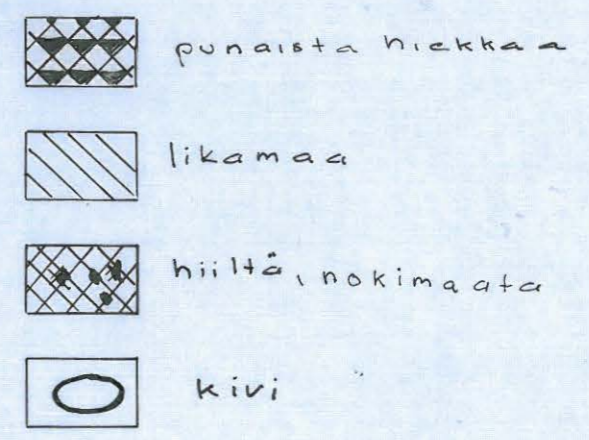 punaista hiekkaa
likamaa
hiiltä, nokimaata
kivi